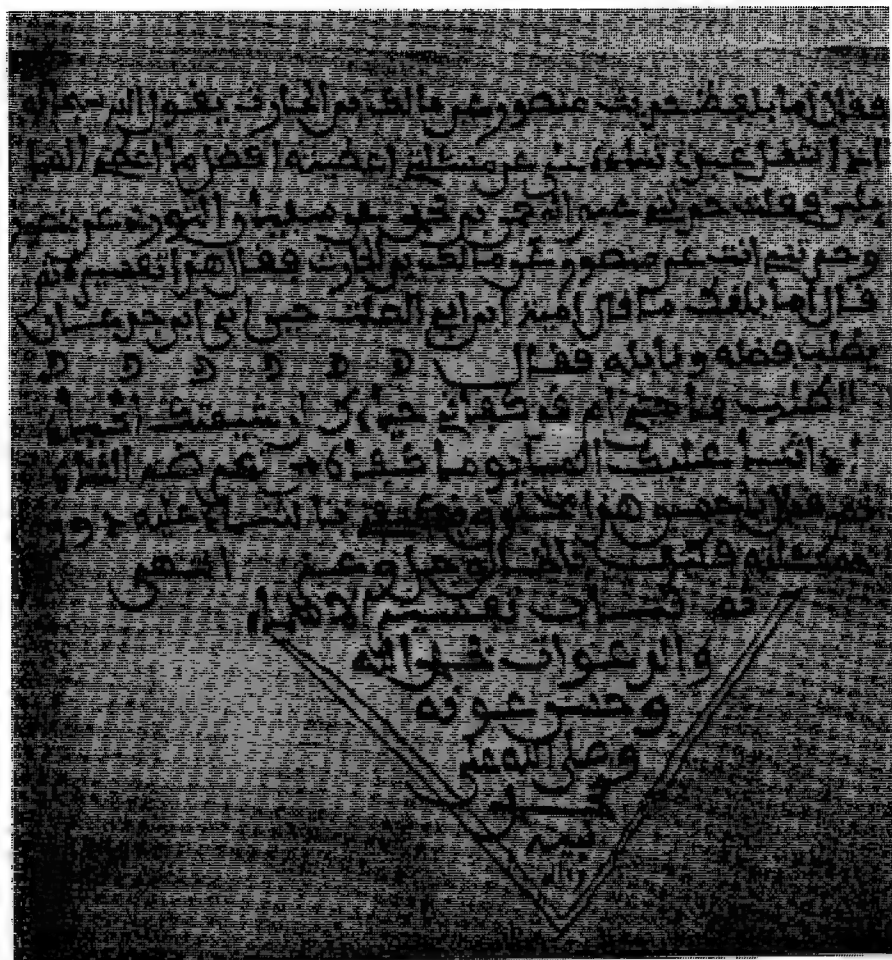 فقال أما بلغك حديث منصور عن مالك بن الحارث يقول الله سبحانه
إذا شغل عبدي ثناؤه علي عن مسئلتي أعطيته أفضل ما أعطي السا
ئلين فقلت حدثني عبد الرحمن بن مهدي عن سفيان الثوري عن منصور
وحدثني أنت عن منصور عن مالك بن الحارث فقال هذا تفسيره ثم
قال أما بلغك ما قال أمية ابن أبي الصلت حين أتى ابن جدعان
يطلب فضله ونايله فقال
أأطلب حاجتي أم قد كفاني حياؤك إن شيمتك الحياء
إذا أثنى عليك المرء يوما كفاه من تعرضه الثناء
ثم قال يا حسين هذا مخلوق يكتفي بالثناء عليه دون
مسئلته فكيف بالخالق جل وعز انتهى
تم كتاب تفسير الأسماء
والدعوات بحمد الله
وحسن عونه
وصلى الله على
محمد
نبيه
وآله